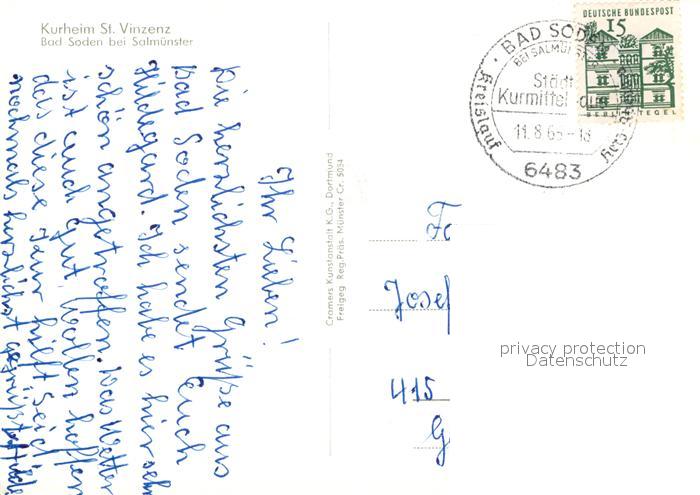 Kurheim St. Vinzenz
Bad Soden bei Salmünster
DEUTSCHE BUNDESPOST
15
BERLIN TEGEL
BAD SODEN
BEI SALMÜNSTER
Städt.
Kurmittel
11.8.65-18
Kreislauf
Herz
6483
Ihr Lieben!
Die herzlichsten Grüße aus
Bad Soden sendet Euch
Hildegard. Ich habe es hier sehr
schön angetroffen. Das Wetter
ist auch gut. Wollen hoffen
das diese Kur hilft. Seid
nochmals herzlichst gegrüßt
Cramers Kunstanstalt K.G., Dortmund
Freigeg. Reg.Präs. Münster Cr. 5034
Josef
415
privacy protection
Datenschutz